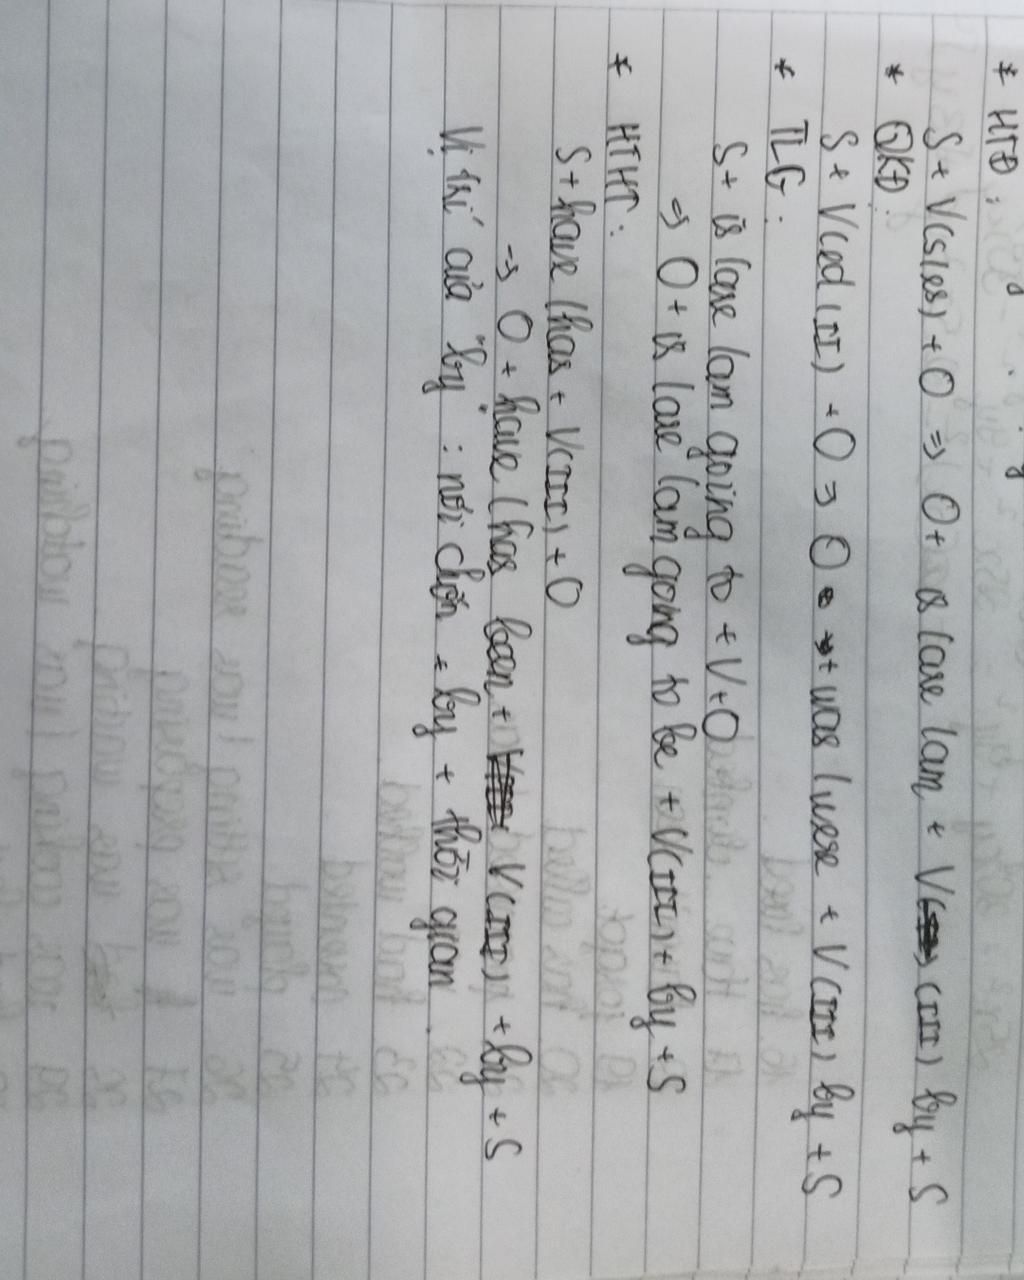 * HTĐ :
S + V(s/es) + O => O + is /are /am + V (III) by + S
* QKĐ :
S + V(ed (II) + O => O + was / were + V(III) by + S
* TLG :
S + is /are /am going to + V + O
=> O + is /are /am going to be + V(III) + by + S
* HTHT :
S + have /has + V(III) + O
-> O + have /has been + V(III) + by + S
Vị trí của "by" : nơi chốn + by + thời gian .